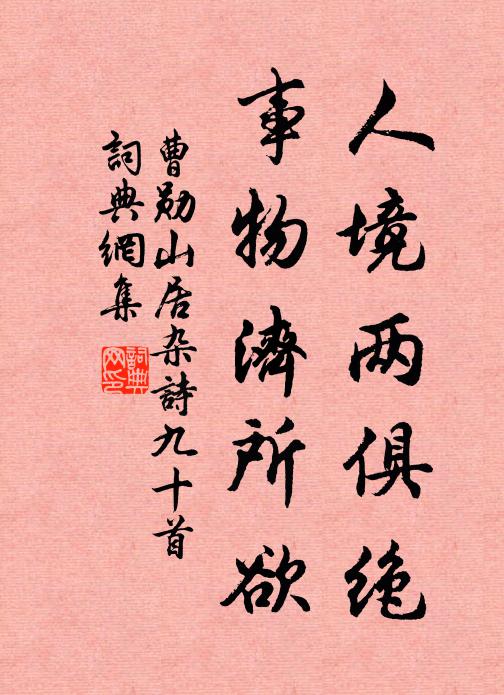 人境两俱绝
事物濟所欲
曹勋山居杂詩九十首
詞典網集
詞典网印